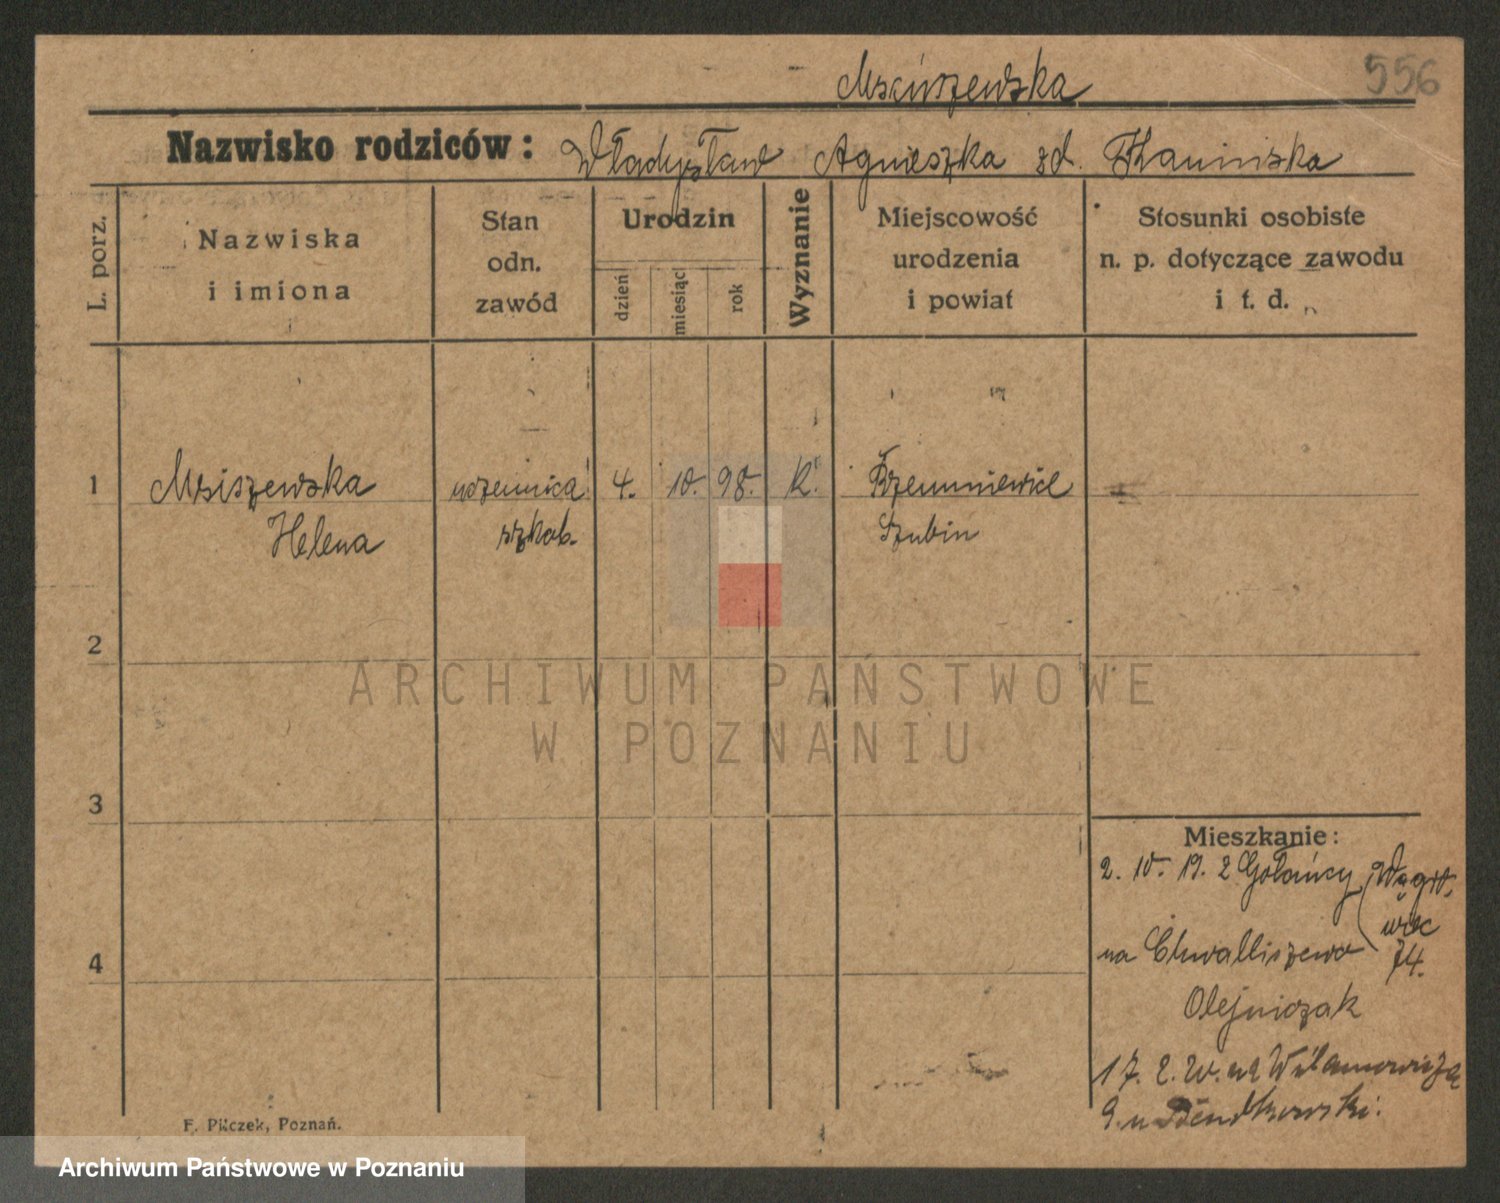 556
Nazwisko rodziców: Władysław Agnieszka zd. Kaminska
L. porz.
Nazwiska i imiona
Stan odn. zawód
Urodzin
dzień
miesiąc
rok
Wyznanie
Miejscowość urodzenia i powiat
Stosunki osobiste n. p. dotyczące zawodu i t. d.
1 Msiszewska uczennica 4. 10. 98. K.
Helena szkol. Szubin
2
3
4
Mieszkanie:
2. 10. 19. z Gołańcy (Wągro-
wiec
na Chwaliszewo 74.
Olejniczak
17. 2. 20. na
9. u
F. Pilczek, Poznań.
ARCHIWUM PAŃSTWOWE
W POZNANIU
Archiwum Państwowe w Poznaniu